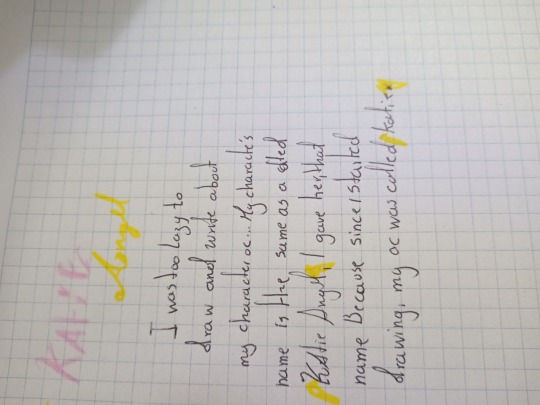 KATiE
Angel
I was too lazy to
draw and write about
my character oc... My character's
name is the same as a
Katie Angel, I gave her that
name Because since I started
drawing, my oc was called Katie